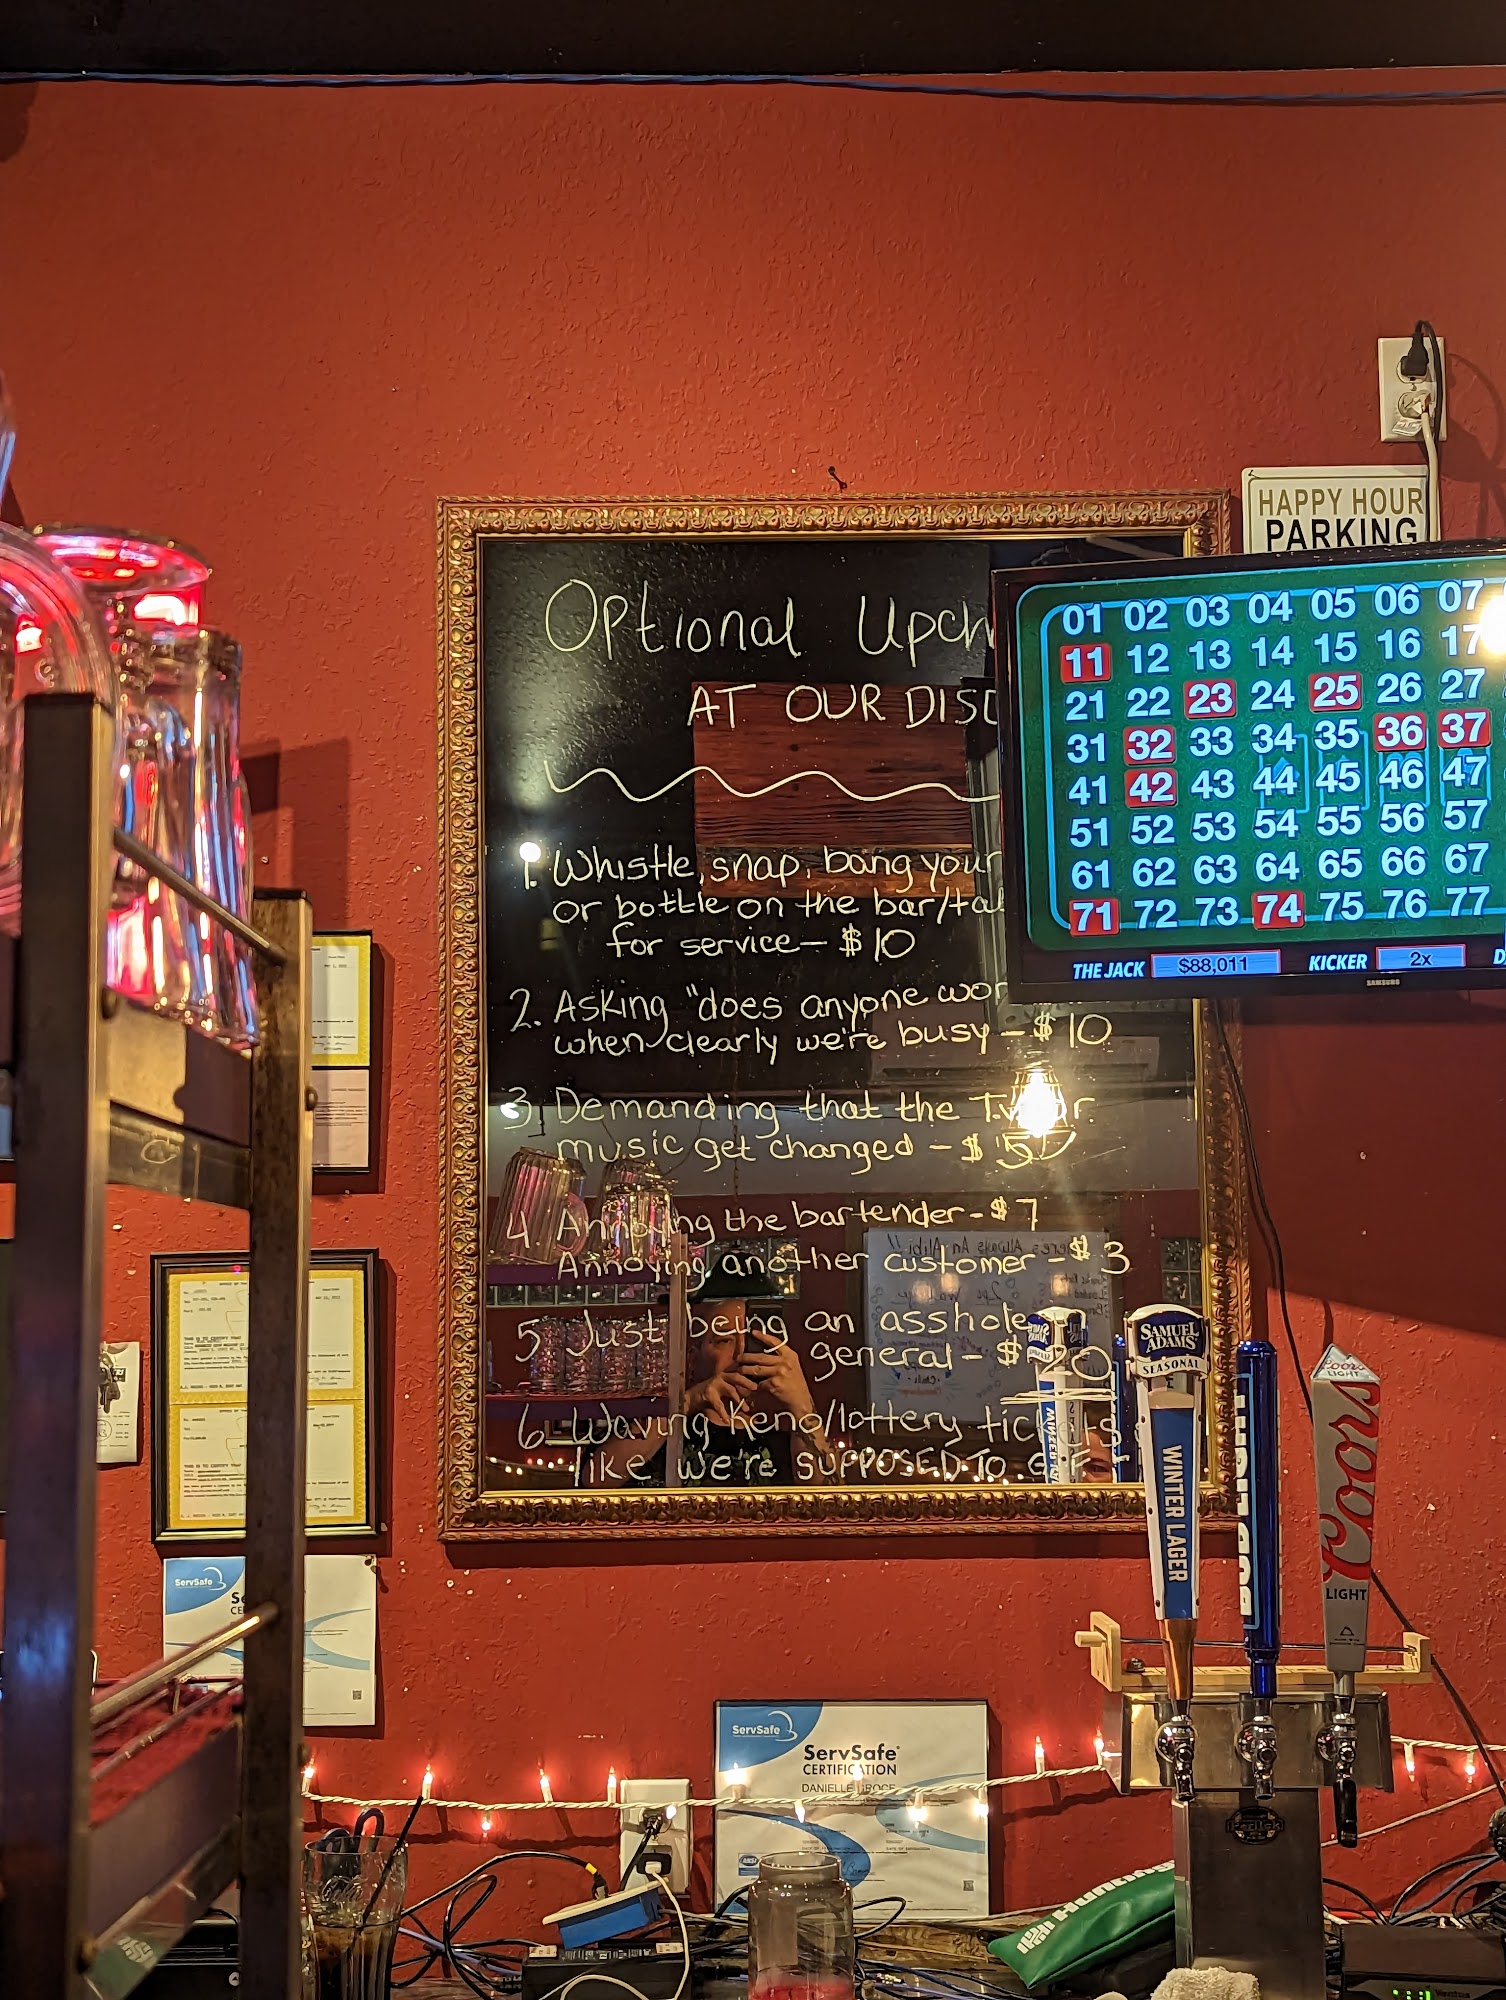 HAPPY HOUR
PARKING
Optional
AT OUR
1. Whistle, snap, bang your
or bottle on the
for service - $10
2. Asking "does anyone
when clearly we're busy - $10
3. Demanding that the T.V. or
music get changed - $5
4. Annoying the bartender - $7
Annoying another customer - $3
5. Just being an asshole in
general - $20
6. Waving Keno/lottery tickets
like we're SUPPOSED TO
01 02 03 04 05 06 07
11 12 13 14 15 16 17
21 22 23 24 25 26 27
31 32 33 34 35 36 37
41 42 43 44 45 46 47
51 52 53 54 55 56 57
61 62 63 64 65 66 67
71 72 73 74 75 76 77
THE JACK $88,011 KICKER 2x
SAMSUNG
SAMUEL
ADAMS
SEASONAL
WINTER LAGER
Coors
LIGHT
Coors
LIGHT
ServSafe
ServSafe
ServSafe
CERTIFICATION
DANIELLE